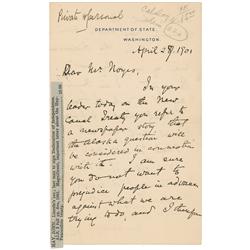 Private & personal
DEPARTMENT OF STATE,
WASHINGTON.
April 28, 1901
Dear Mr Noyes,
In your
leader today on the New
Canal Treaty you refer to
a newspaper story that
the Alaska question will
be considered in connection
with it. I am sure
you do not want to
prejudice people in advance
against what we are
trying to do and I therefore